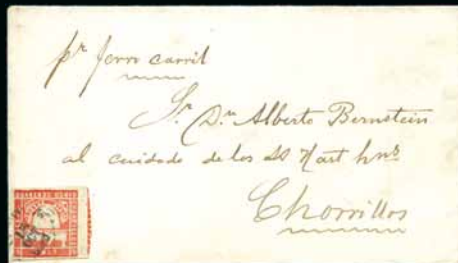 pr ferro carril
Sr. Dn. Alberto Bernstein
al cuidado de los SS Hart hnos
Chorrillos